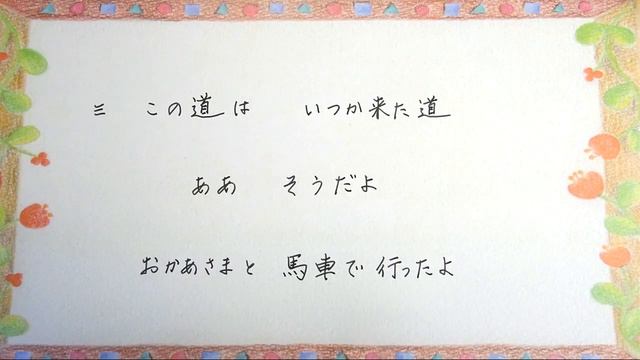 三 この道は いつか来た道
ああ そうだよ
おかあさまと 馬車で行ったよ